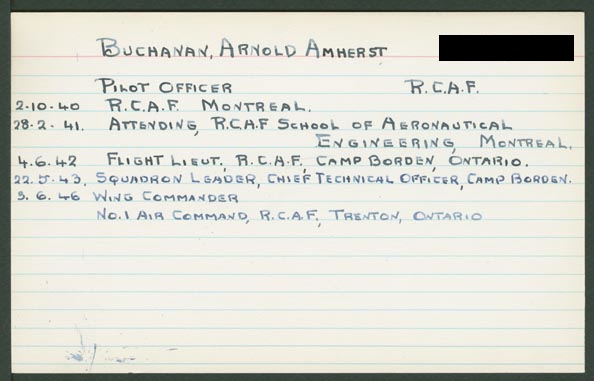 BUCHANAN, ARNOLD AMHERST
PILOT OFFICER R.C.A.F.
2-10-40 R.C.A.F. MONTREAL.
28-2-41. ATTENDING, R.C.A.F SCHOOL OF AERONAUTICAL
ENGINEERING, MONTREAL.
4.6.42 FLIGHT LIEUT., R.C.A.F., CAMP BORDEN, ONTARIO.
22.5.43, SQUADRON LEADER, CHIEF TECHNICAL OFFICER, CAMP BORDEN.
3.6.46 WING COMMANDER
NO.1 AIR COMMAND, R.C.A.F., TRENTON, ONTARIO